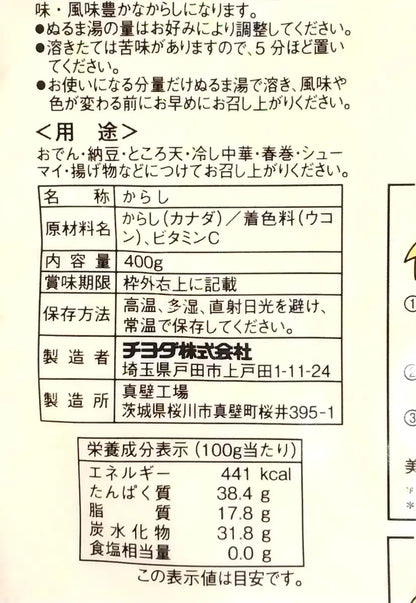 味・風味豊かなからしになります。
●ぬるま湯の量はお好みにより調整してください。
●溶きたては苦味がありますので、5分ほど置い
てください。
●お使いになる分量だけぬるま湯で溶き、風味や
色が変わる前にお早めにお召し上がりください。
＜用　途＞
おでん・納豆・ところ天・冷し中華・春巻・シュー
マイ・揚げ物などにつけてお召し上がりください。
名　称 からし
原材料名 からし(カナダ)／着色料(ウコ
ン)、ビタミンC
内容量 400g
賞味期限 枠外右上に記載
保存方法 高温、多湿、直射日光を避け、
常温で保存してください。
製造者 チヨダ株式会社
埼玉県戸田市上戸田1-11-24
製造所 真壁工場
茨城県桜川市真壁町桜井395-1
栄養成分表示(100g当たり)
エネルギー 441 kcal
たんぱく質 38.4 g
脂　質 17.8 g
炭水化物 31.8 g
食塩相当量 0.0 g
この表示値は目安です。
①
②
③
美